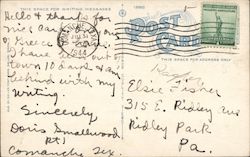 THIS SPACE FOR WRITING MESSAGES
POST CARD
THIS SPACE FOR ADDRESS ONLY
Hello & thanks for
nice card
of Greece
town 10 days & am
behind with my
writing.
Sincerely
Doris Smallwood
Rt 1
Comanche Tex.
Elsie Fisher
315 E. Ridley Ave
Ridley Park
Pa.